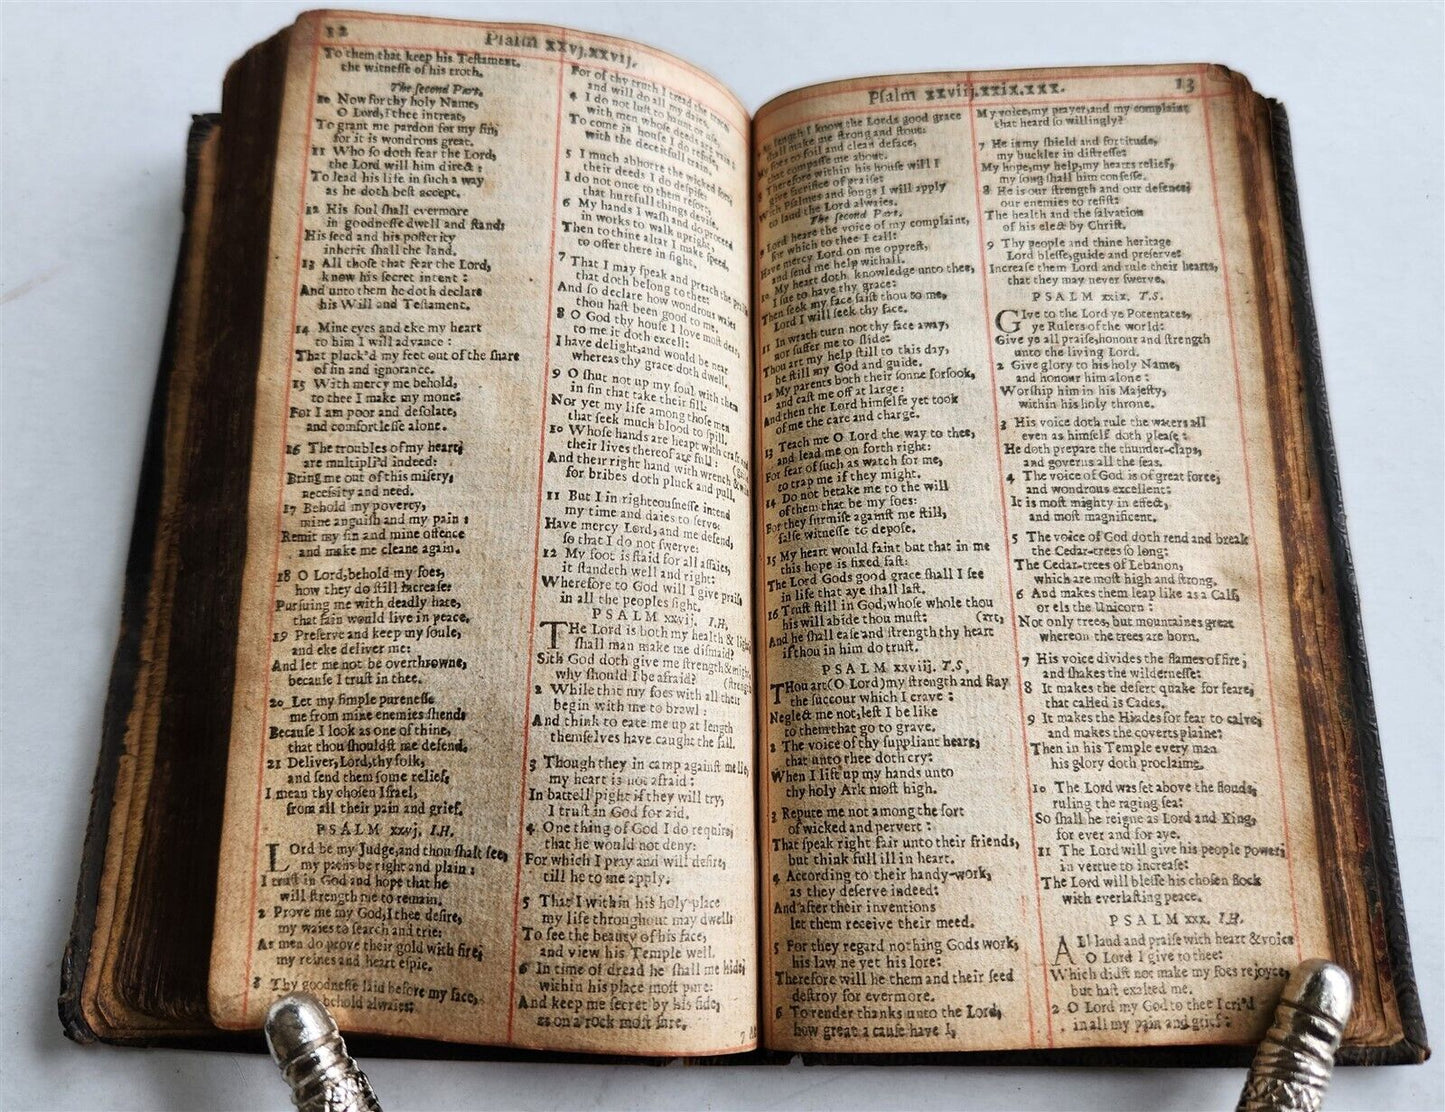 12 Psalm xxvj.xxvij.
To them that keep his Testament,
the witnesse of his troth.
The second Part.
10 Now for thy holy Name,
O Lord, I thee intreat,
To grant me pardon for my sin,
for it is wondrous great.
11 Who so doth fear the Lord,
the Lord will him direct:
To lead his life in such a way
as he doth best accept.
12 His soul shall evermore
in goodnesse dwell and stand:
His seed and his posterity
inherit shall the land.
13 All those that fear the Lord,
know his secret intent:
And unto them he doth declare
his Will and Testament.
14 Mine eyes and eke my heart
to him I will advance:
That pluck'd my feet out of the snare
of sin and ignorance.
15 With mercy me behold,
to thee I make my mone:
For I am poor and desolate,
and comfortlesse alone.
16 The troubles of my heart,
are multipli'd indeed:
Bring me out of this misery,
necessity and need.
17 Behold my poverty,
mine anguish and my pain:
Remit my sin and mine offence
and make me cleane again.
18 O Lord, behold my foes,
how they do still increase:
Pursuing me with deadly hate,
that fain would live in peace.
19 Preserve and keep my soule,
and eke deliver me:
And let me not be overthrowne,
because I trust in thee.
20 Let my simple purenesse
me from mine enemies shend:
Because I look as one of thine,
that thou shouldst me defend.
21 Deliver, Lord, thy folk,
and send them some relief,
I mean thy chosen Israel,
from all their pain and grief.
PSALM xxvj. I.H.
LOrd be my Judge, and thou shalt see,
my paths be right and plain:
I trust in God and hope that he
will strength me to remain.
2 Prove me my God, I thee desire,
my waies to search and trie:
As men do prove their gold with fire,
my reines and heart espie.
3 Thy goodnesse laid before my face,
behold alwaies:
For of thy truth I tread the
and will do all my daies.
4 I do not lust to haunt or use,
with men whose deeds are vain:
To come in house I do refuse,
with the deceitfull train.
5 I much abhorre the wicked sort,
their deeds I do despise:
I do not once to them resort,
that hurtfull things devise.
6 My hands I wash and do proceed
in works to walk upright,
Then to thine altar I make speed,
to offer there in sight.
7 That I may speak and preach the praise
that doth belong to thee:
And so declare how wondrous waies
thou hast been good to me.
8 O God thy house I love most dear,
to me it doth excell:
I have delight, and would be near
whereas thy grace doth dwell.
9 O shut not up my soul with them
in sin that take their fill:
Nor yet my life among those men
that seek much blood to spill.
10 Whose hands are heapt with craft and
their lives thereof are full:
And their right hand with wrench &
for bribes doth pluck and pull.
11 But I in righteousnesse intend
my time and daies to serve:
Have mercy Lord, and me defend,
so that I do not swerve:
12 My foot is staid for all assaies,
it standeth well and right:
Wherefore to God will I give praise
in all the peoples sight.
PSALM xxvij. I.H.
THe Lord is both my health & light
shall man make me dismaid?
Sith God doth give me strength & might
why should I be afraid? (strength
2 While that my foes with all their
begin with me to brawl:
And think to eate me up at length
themselves have caught the fall.
3 Though they in camp against me lie,
my heart is not afraid:
In battell pight if they will try,
I trust in God for aid.
4 One thing of God I do require,
that he would not deny:
For which I pray and will desire,
till he to me apply.
5 That I within his holy place
my life throughout may dwell:
To see the beauty of his face,
and view his Temple well.
6 In time of dread he shall me hide,
within his place most pure:
And keep me secret by his side,
as on a rock most sure.
Psalm xxviij.xxix.xxx. 13
length I know the Lords good grace
shall make me strong and stout:
My foes to foil and clean deface,
that compasse me about.
8 Therefore within his house will I
give sacrifice of praise:
With Psalmes and songs I will apply
to laud the Lord alwaies.
The second Part.
9 Lord heare the voice of my complaint,
for which to thee I call:
Have mercy Lord on me opprest,
and send me help withall.
10 My heart doth knowledge unto thee,
I sue to have thy grace:
Then seek my face saist thou to me,
Lord I will seek thy face.
11 In wrath turn not thy face away,
nor suffer me to slide:
Thou art my help still to this day,
be still my God and guide.
12 My parents both their sonne forsook,
and cast me off at large:
And then the Lord himselfe yet took
of me the care and charge.
13 Teach me O Lord the way to thee,
and lead me on forth right:
For fear of such as watch for me,
to trap me if they might.
14 Do not betake me to the will
of them that be my foes:
For they surmise against me still,
false witnesse to depose.
15 My heart would faint but that in me
this hope is fixed fast:
The Lord Gods good grace shall I see
in life that aye shall last.
16 Trust still in God, whose whole thou
his will abide thou must: (art,
And he shall ease and strength thy heart
if thou in him do trust.
PSALM xxviij. T.S,
THou art (O Lord) my strength and stay
the succour which I crave:
Neglect me not, lest I be like
to them that go to grave.
2 The voice of thy suppliant heare,
that unto thee doth cry:
When I lift up my hands unto
thy holy Ark most high.
3 Repute me not among the sort
of wicked and pervert:
That speak right fair unto their friends,
but think full ill in heart.
4 According to their handy-work,
as they deserve indeed:
And after their inventions
let them receive their meed.
5 For they regard nothing Gods work,
his law ne yet his lore:
Therefore will he them and their seed
destroy for evermore.
6 To render thanks unto the Lord,
how great a cause have I,
My voice, my prayer, and my complaint
that heard so willingly?
7 He is my shield and fortitude,
my buckler in distresse:
My hope, my help, my hearts relief,
my song shall him confesse.
8 He is our strength and our defence,
our enemies to resist:
The health and the salvation
of his elect by Christ.
9 Thy people and thine heritage
Lord blesse, guide and preserve:
Increase them Lord and rule their hearts,
that they may never swerve.
PSALM xxix. T.S.
GIve to the Lord ye Potentates,
ye Rulers of the world:
Give ye all praise, honour and strength
unto the living Lord.
2 Give glory to his holy Name,
and honour him alone:
Worship him in his Majesty,
within his holy throne.
3 His voice doth rule the waters all
even as himself doth please:
He doth prepare the thunder-claps,
and governs all the seas.
4 The voice of God is of great force,
and wondrous excellent:
It is most mighty in effect,
and most magnificent.
5 The voice of God doth rend and break
the Cedar-trees so long:
The Cedar-trees of Lebanon,
which are most high and strong.
6 And makes them leap like as a Calf,
or els the Unicorn:
Not only trees, but mountaines great
whereon the trees are born.
7 His voice divides the flames of fire,
and shakes the wildernesse:
8 It makes the desert quake for feare,
that called is Cades.
9 It makes the Hindes for fear to calve,
and makes the coverts plaine:
Then in his Temple every man
his glory doth proclaime.
10 The Lord was set above the flouds,
ruling the raging sea:
So shall he reigne as Lord and King,
for ever and for aye.
11 The Lord will give his people power,
in vertue to increase:
The Lord will blesse his chosen flock
with everlasting peace.
PSALM xxx. I.H.
ALl laud and praise with heart & voice
O Lord I give to thee:
Which didst not make my foes rejoyce,
but hast exalted me.
2 O Lord my God to thee I cri'd
in all my pain and grief: